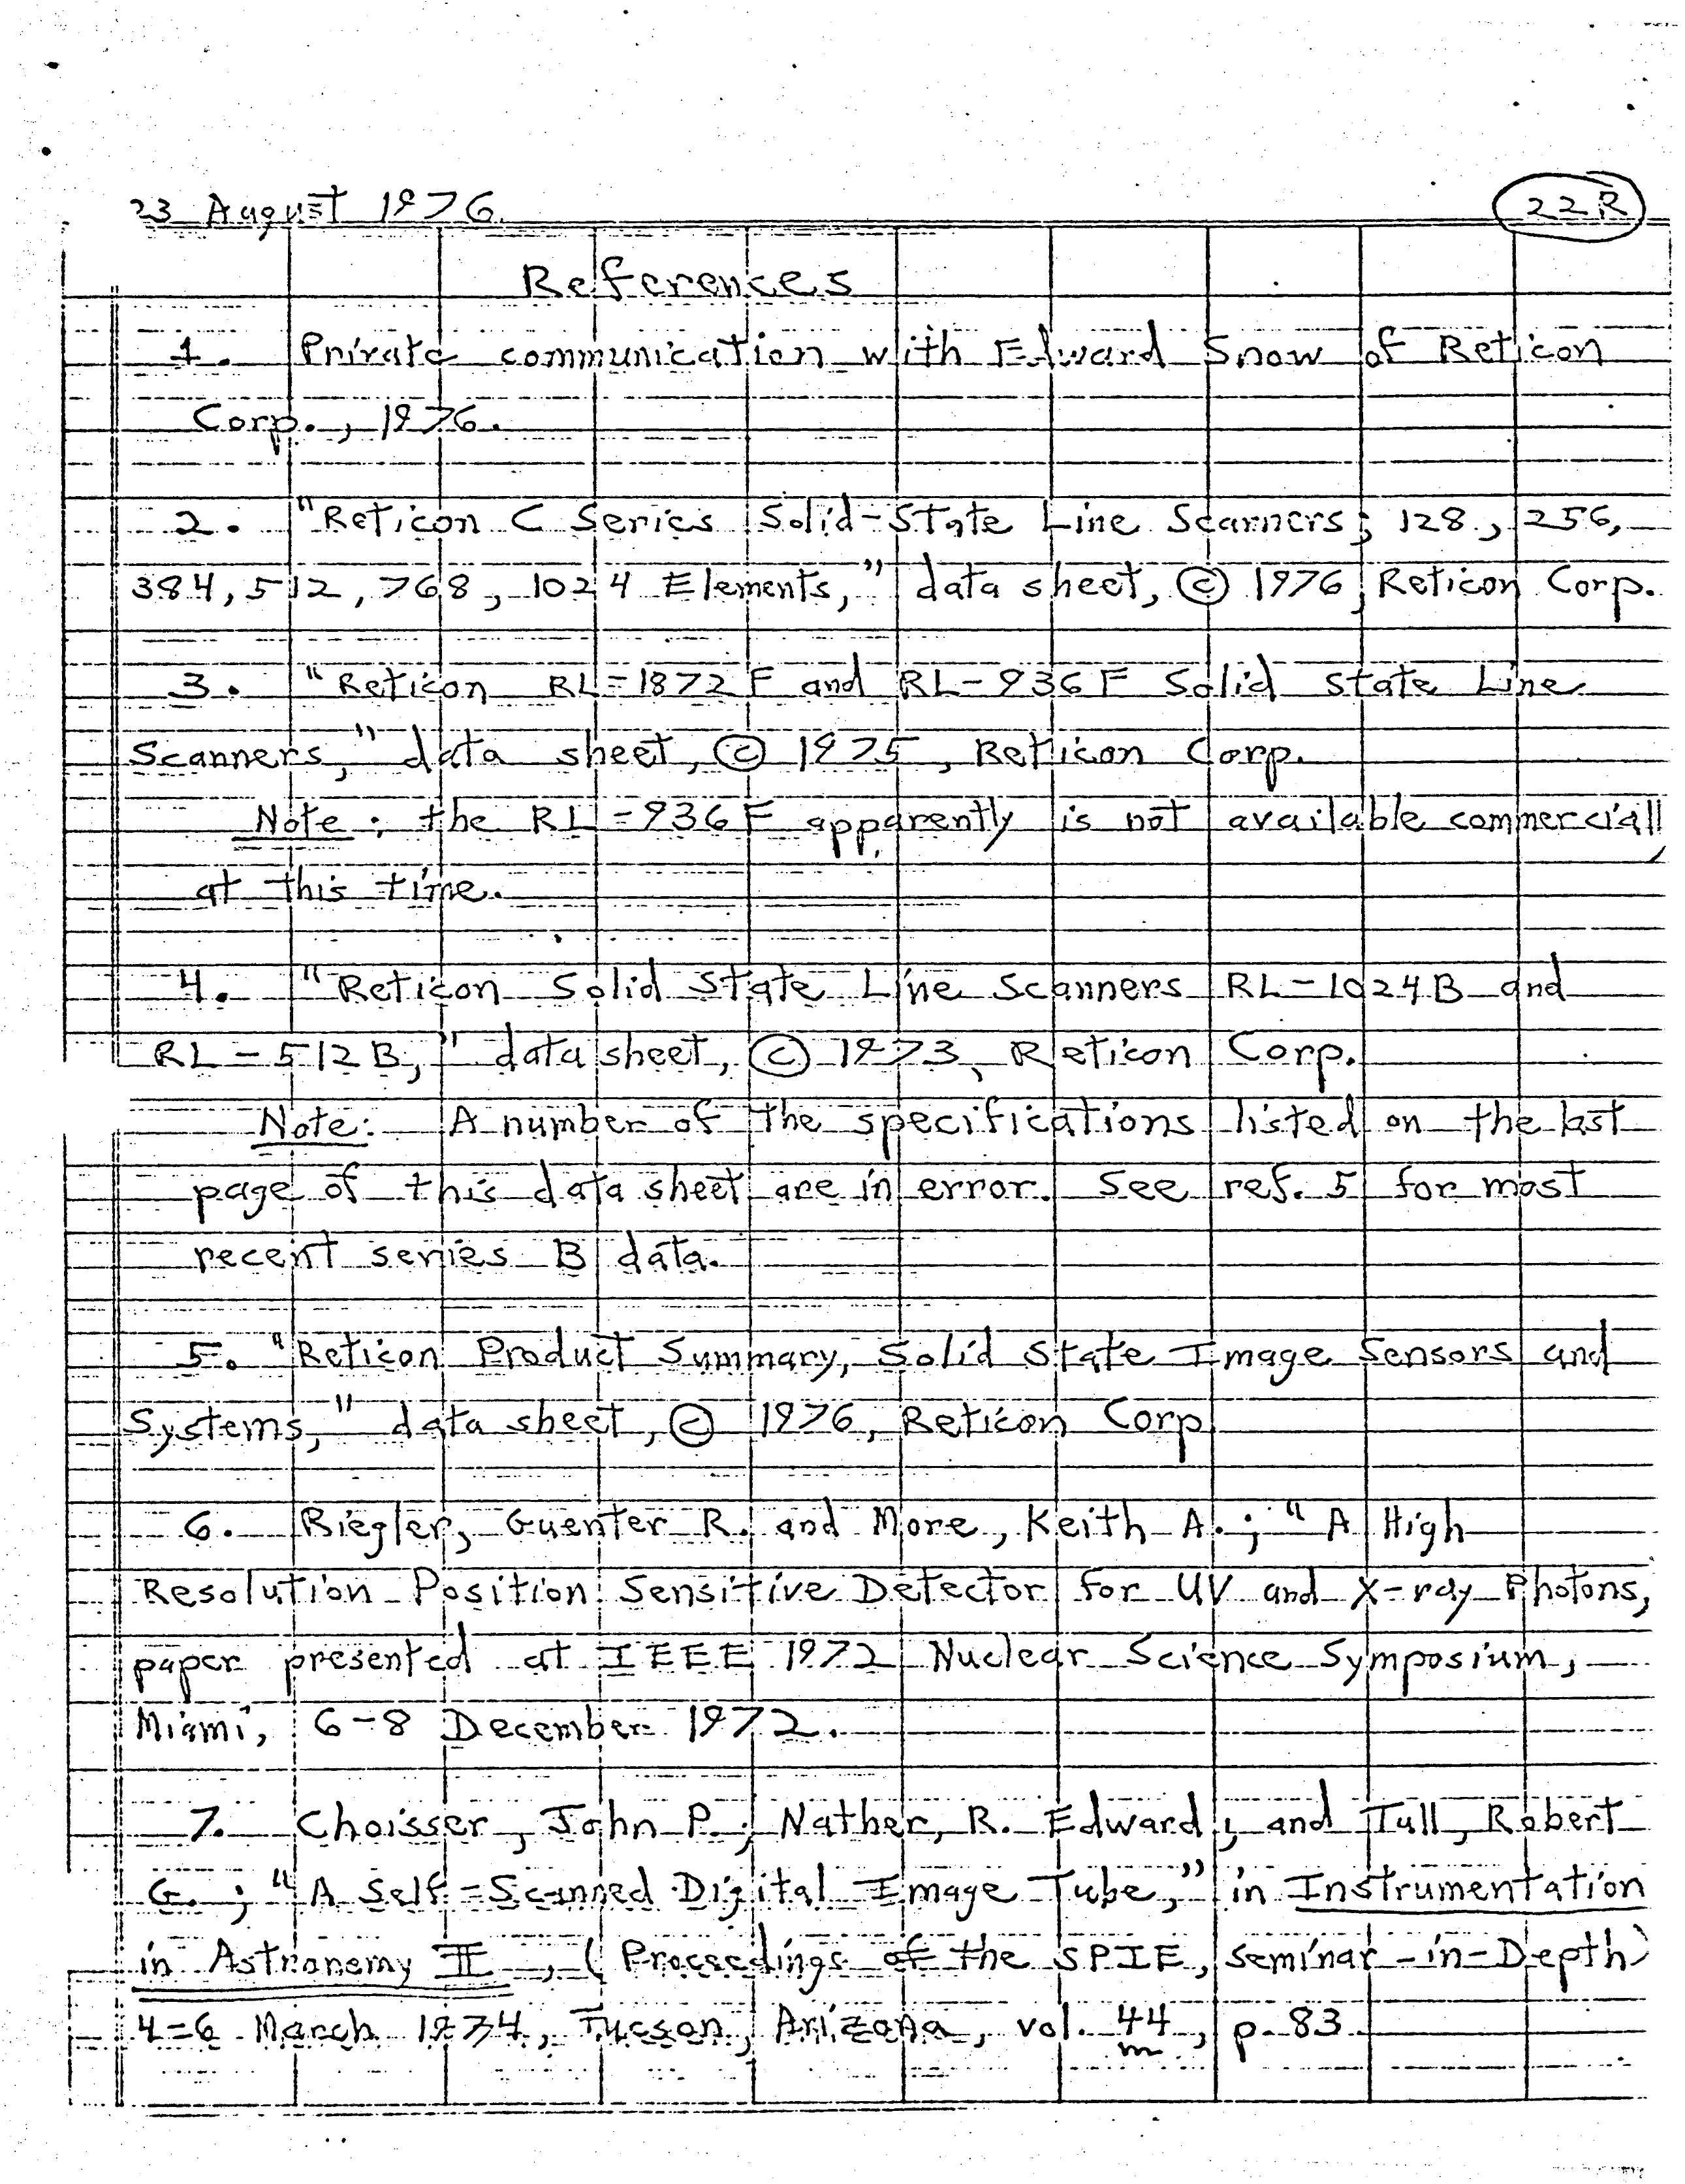 23 August 1976
22R
References
1. Private communication with Edward Snow of Reticon
Corp., 1976.
2. "Reticon C Series Solid-State Line Scanners; 128, 256,
384, 512, 768, 1024 Elements," data sheet, © 1976, Reticon Corp.
3. "Reticon RL-1872F and RL-936F Solid State Line
Scanners," data sheet, © 1975, Reticon Corp.
Note: the RL-936F apparently is not available commercially
at this time.
4. "Reticon Solid State Line Scanners RL-1024B and
RL-512B," data sheet, © 1973, Reticon Corp.
Note: A number of the specifications listed on the last
page of this data sheet are in error. See ref. 5 for most
recent series B data.
5. "Reticon Product Summary, Solid State Image Sensors and
Systems," data sheet, © 1976, Reticon Corp.
6. Riegler, Guenter R. and More, Keith A.; "A High
Resolution Position Sensitive Detector for UV and X-ray Photons,
paper presented at IEEE 1972 Nuclear Science Symposium,
Miami, 6-8 December 1972.
7. Choisser, John P.; Nather, R. Edward; and Tull, Robert
G.; "A Self-Scanned Digital Image Tube," in Instrumentation
in Astronomy II, (Proceedings of the SPIE, Seminar-in-Depth)
4-6 March 1974, Tucson, Arizona, vol. 44, p. 83